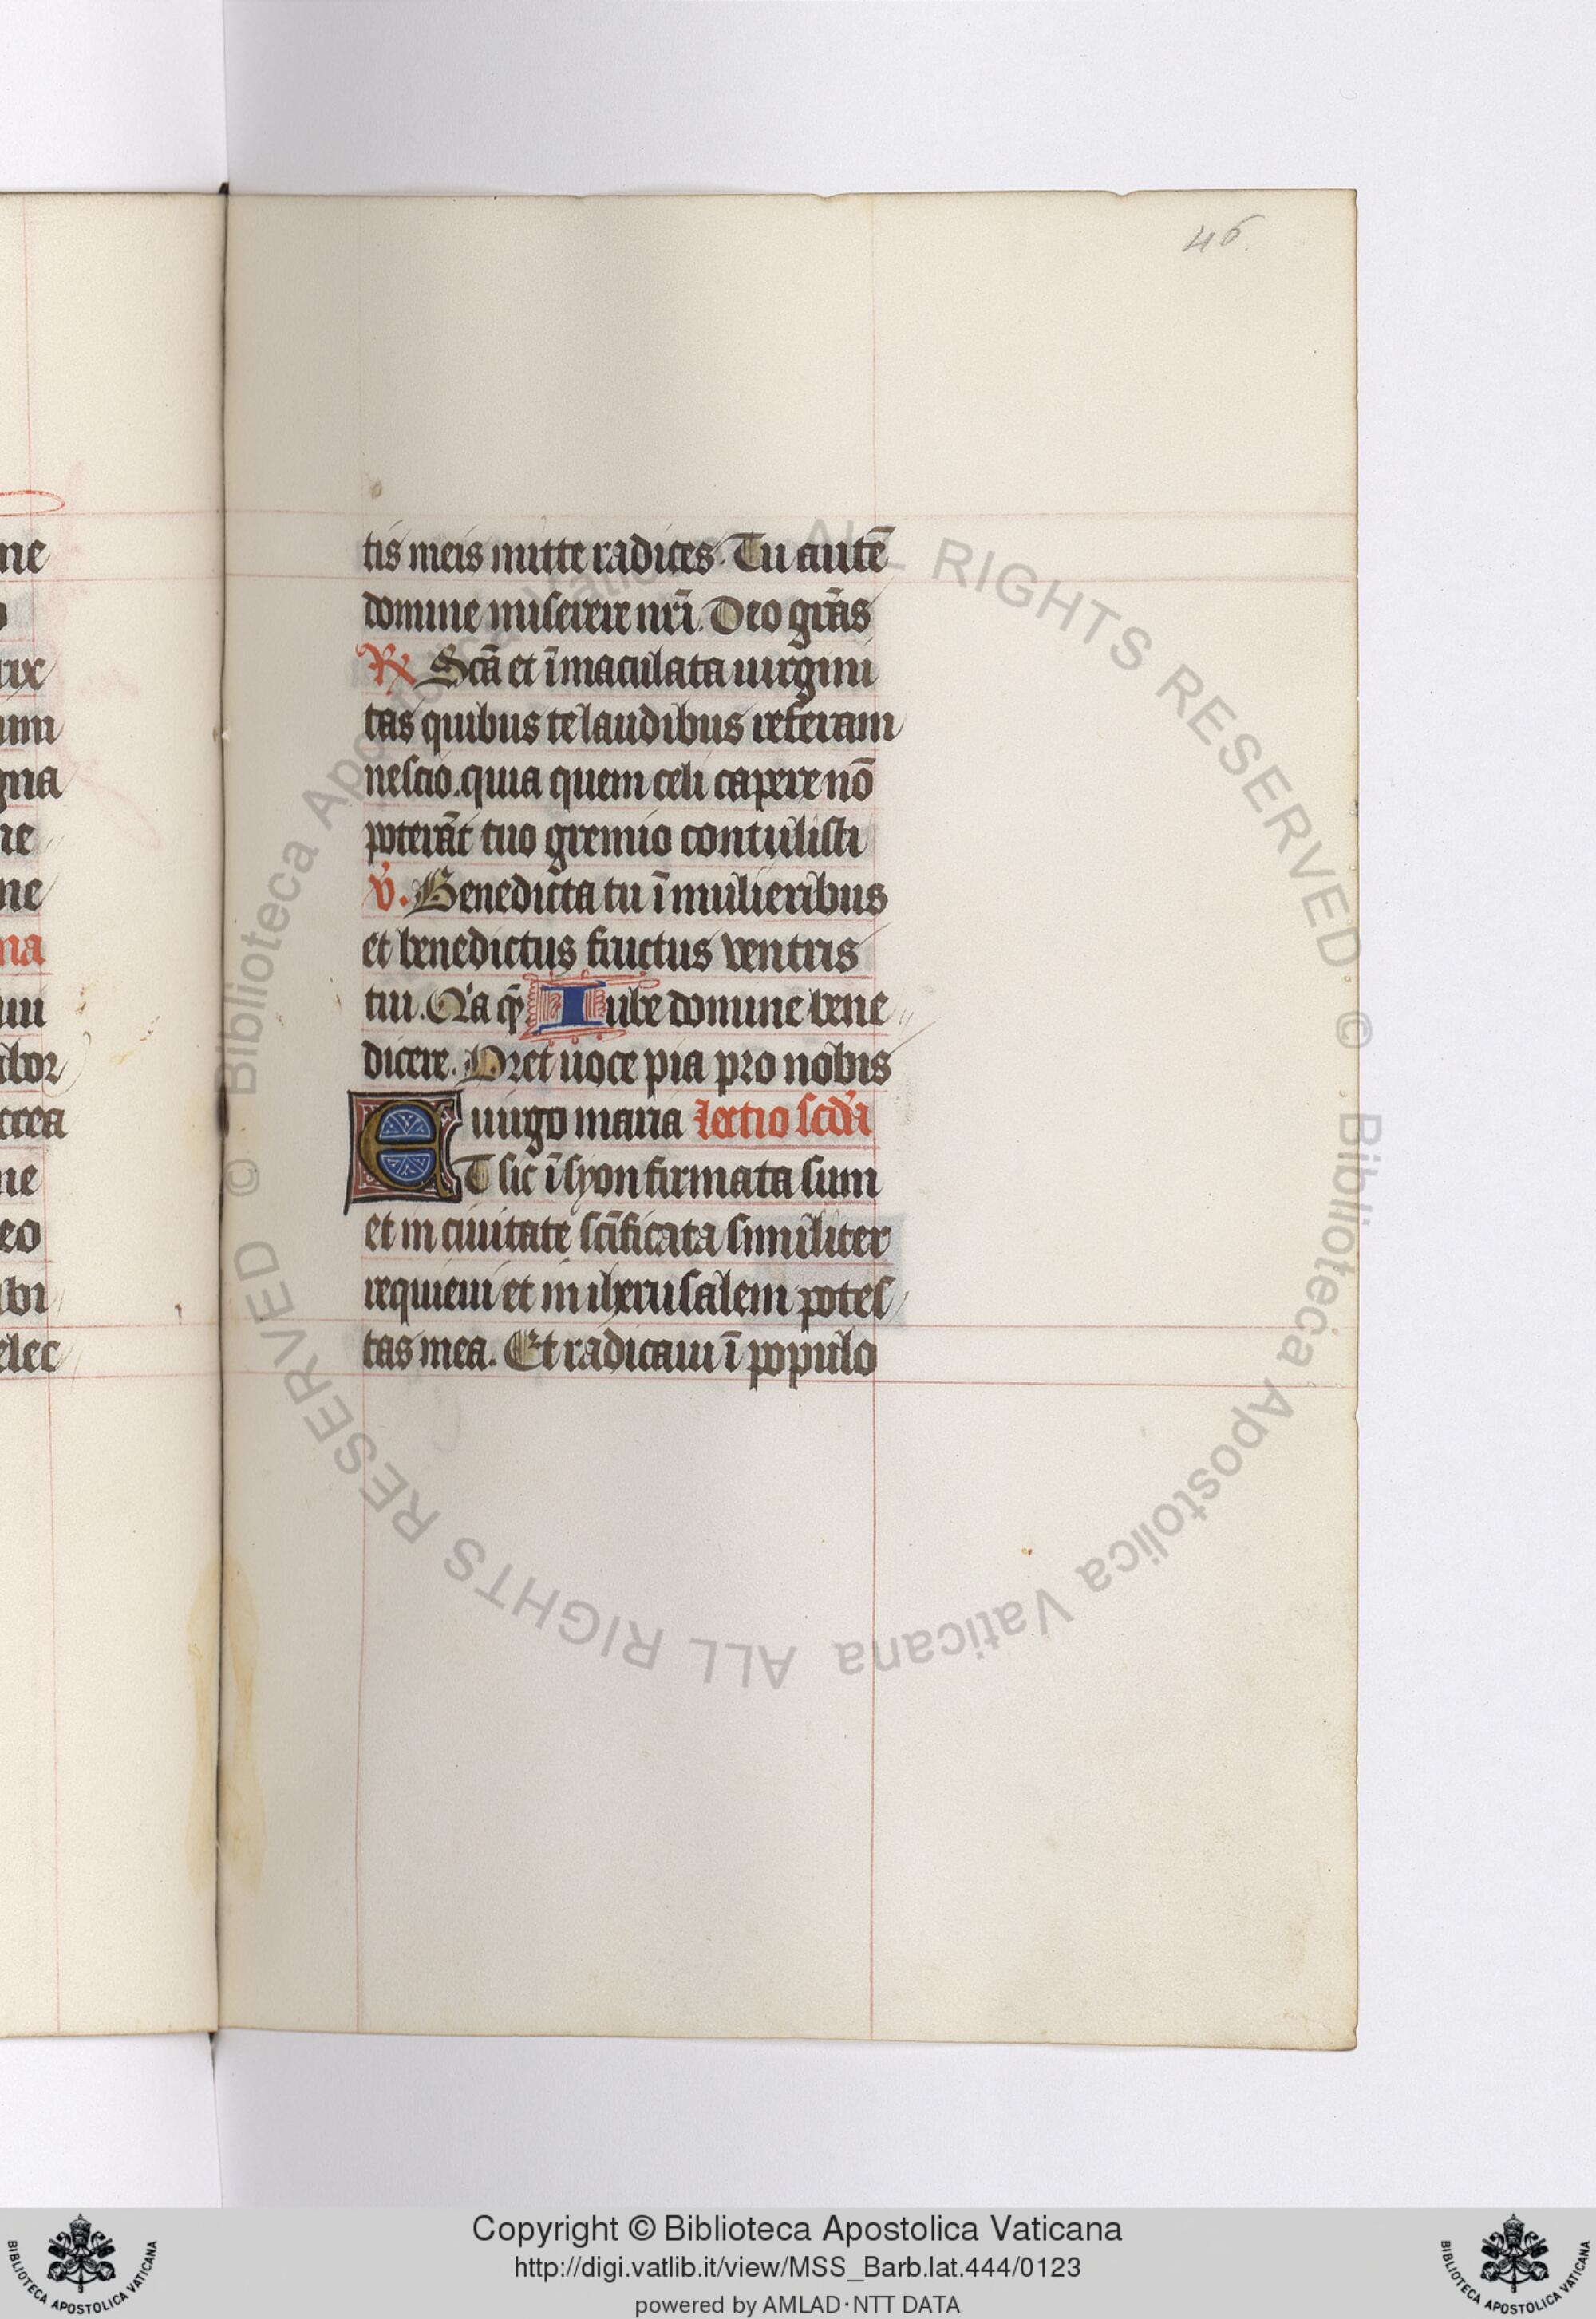 46
ne
o
rix
um
gna
ne
ne
na
uu
lbor
ctea
ne
eo
ibi
elec
tis meis mitte radices. Tu autē
domine miserere nr̄i. Deo grās
R̸ Scā et īmaculata uirgini
tas quibus te laudibus referam
nescio. quia quem celi capere nō
poterāt tuo gremio contulisti
v̉. Benedicta tu ī mulieribus
et benedictus fructus ventris
tui. Q'a q̄ Iube domine bene
dicere. Oret uoce pia pro nobis
uirgo maria lectio scd'a
ET sic ī syon firmata sum
et in ciuitate scīficata similiter
requieui et in iherusalem potes
tas mea. Et radicaui ī populo
© Biblioteca Apostolica Vaticana ALL RIGHTS RESERVED
© Biblioteca Apostolica Vaticana ALL RIGHTS RESERVED
Copyright © Biblioteca Apostolica Vaticana
http://digi.vatlib.it/view/MSS_Barb.lat.444/0123
powered by AMLAD·NTT DATA
BIBLIOTECA APOSTOLICA VATICANA
BIBLIOTECA APOSTOLICA VATICANA